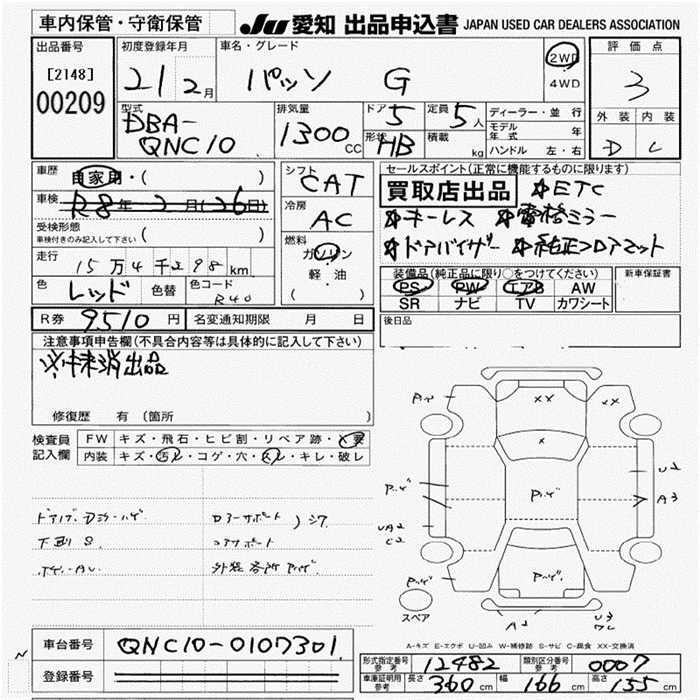 車内保管・守衛保管
JU 愛知 出品申込書 JAPAN USED CAR DEALERS ASSOCIATION
出品番号 [2148] 00209
初度登録年月 21年 2月
車名・グレード パッソ G
2WD
4WD
評価点 3
外装 内装
D C
型式 DBA-QNC10
排気量 1300 CC
ドア 5
形状 HB
定員 5人
積載 kg
ディーラー・並行
モデル年式 年
ハンドル 左・右
車歴 自家用・( )
車検 R8年2月(26日)
受検形態 ( )
車検付きのみ記入して下さい
走行 15万4千298km
色 レッド 色替 色コード R40
シフト CAT
冷房 AC
燃料 ガソリン
軽・油
( )
セールスポイント(正常に機能するものに限ります)
買取店出品 ☆ETC
☆キーレス ☆電格ミラー
☆ドアバイザー ☆純正フロアマット
装備品(純正品に限り○をつけてください)
PS PW エアB AW
SR ナビ TV カワシート
新車保証書
後日品
R券 9510円 名変通知期限 月 日
注意事項申告欄(不具合内容等は具体的に記入して下さい)
※抹消出品
修復歴 有 (箇所
検査員記入欄 FW キズ・飛石・ヒビ割・リペア跡・X要
内装 キズ・汚レ・コゲ・穴・スレ・キレ・破レ
下廻S
コアサポート
A2
U2
A3
UA2
C2
XX
X
スペア
A-キズ E-エクボ U-凹み W-補修跡 S-サビ C-腐食 XX-交換済
車台番号 QNC10-0107301
登録番号
型式指定番号 参考 12482 類別区分番号 参考 0007
車庫証明用 参考 長さ 360cm 幅 166cm 高さ 155cm